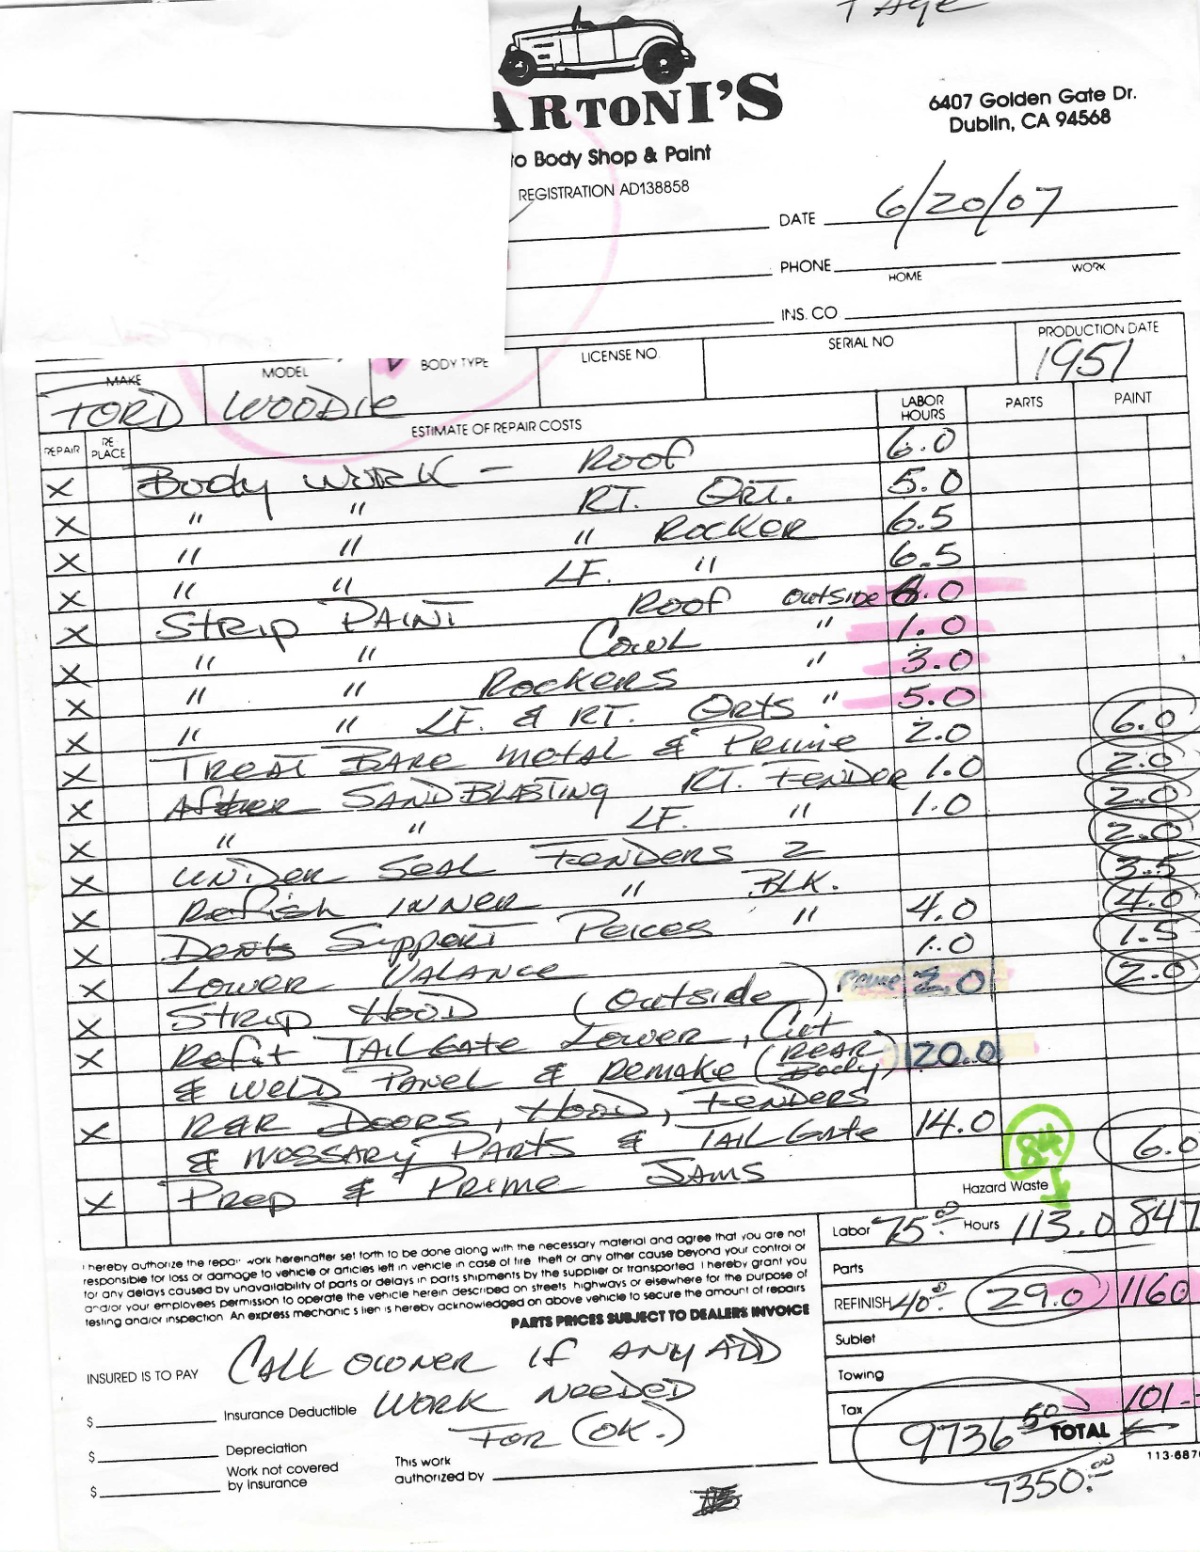 PAGE
ARTONI'S
6407 Golden Gate Dr.
Dublin, CA 94568
to Body Shop & Paint
REGISTRATION AD138858
DATE 6/20/07
PHONE
HOME WORK
INS. CO
MAKE MODEL BODY TYPE LICENSE NO. SERIAL NO PRODUCTION DATE
FORD WOODIE 1951
REPAIR RE PLACE ESTIMATE OF REPAIR COSTS LABOR HOURS PARTS PAINT
X Body WORK - ROOF 6.0
X " " RT. QRT. 5.0
X " " " ROCKER 6.5
X " " LF. " 6.5
X STRIP PAINT ROOF outside 6.0
X " " COWL " 1.0
X " " ROCKERS " 3.0
X " " LF. & RT. QRTS " 5.0
X TREAT BARE METAL & PRIME 2.0 6.0
X AFTER SANDBLASTING RT. FENDER 1.0 2.0
X " " LF. " 1.0 2.0
X UNDER SEAL FENDERS 2 2.0
X Refish INNER " BLK. 3.5
X Dents Support Peices " 4.0 4.0
X LOWER VALANCE 1.0 1.5
X STRIP HOOD (outside) PRIME 2.0 2.0
X Refit TAILGATE LOWER, Cut
& WELD PANEL & REMAKE (REAR Body) 20.0
X R&R DOORS, HOOD, FENDERS
& NOSSARY PARTS & TAILGATE 14.0
X PREP & PRIME JAMS 6.0
84
Hazard Waste
Labor 75.00 Hours 113.0 847
Parts
REFINISH 40.00 29.0 1160
Sublet
Towing
Tax 101-
9736.50 TOTAL
7350.00
113-687
I hereby authorize the repair work hereinafter set forth to be done along with the necessary material and agree that you are not
responsible for loss or damage to vehicle or articles left in vehicle in case of fire theft or any other cause beyond your control or
for any delays caused by unavailability of parts or delays in parts shipments by the supplier or transported I hereby grant you
and/or your employees permission to operate the vehicle herein described on streets, highways or elsewhere for the purpose of
testing and/or inspection. An express mechanic's lien is hereby acknowledged on above vehicle to secure the amount of repairs
PARTS PRICES SUBJECT TO DEALERS INVOICE
INSURED IS TO PAY CALL OWNER IF ANY ADD
$ Insurance Deductible WORK NEEDED
FOR (OK.)
$ Depreciation
$ Work not covered by insurance
This work authorized by